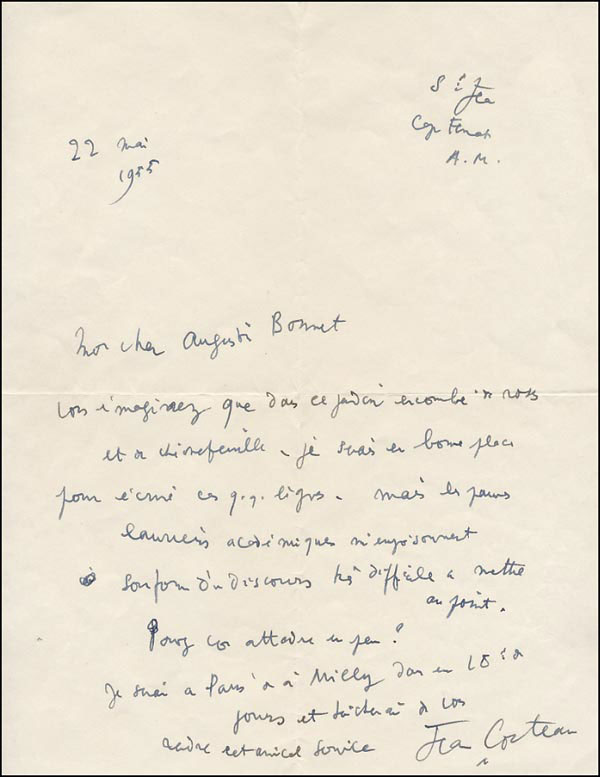 22 mai
1955
St
Jean
Cap Ferrat
A.M.
Mon cher Auguste Bonnet
Vous imaginez que dans ce jardin encombré de roses
et de chèvrefeuille - je serais en bonne place
pour écrire ces q.q. lignes - mais les jeunes
lauriers académiques m'empoisonnent
sous forme d'un discours très difficile à mettre
au point.
Pouvez vous attendre un peu?
Je serai à Paris ou à Milly dans une 15e de
jours et tâcherai de vous
rendre cet amical service
Jean Cocteau